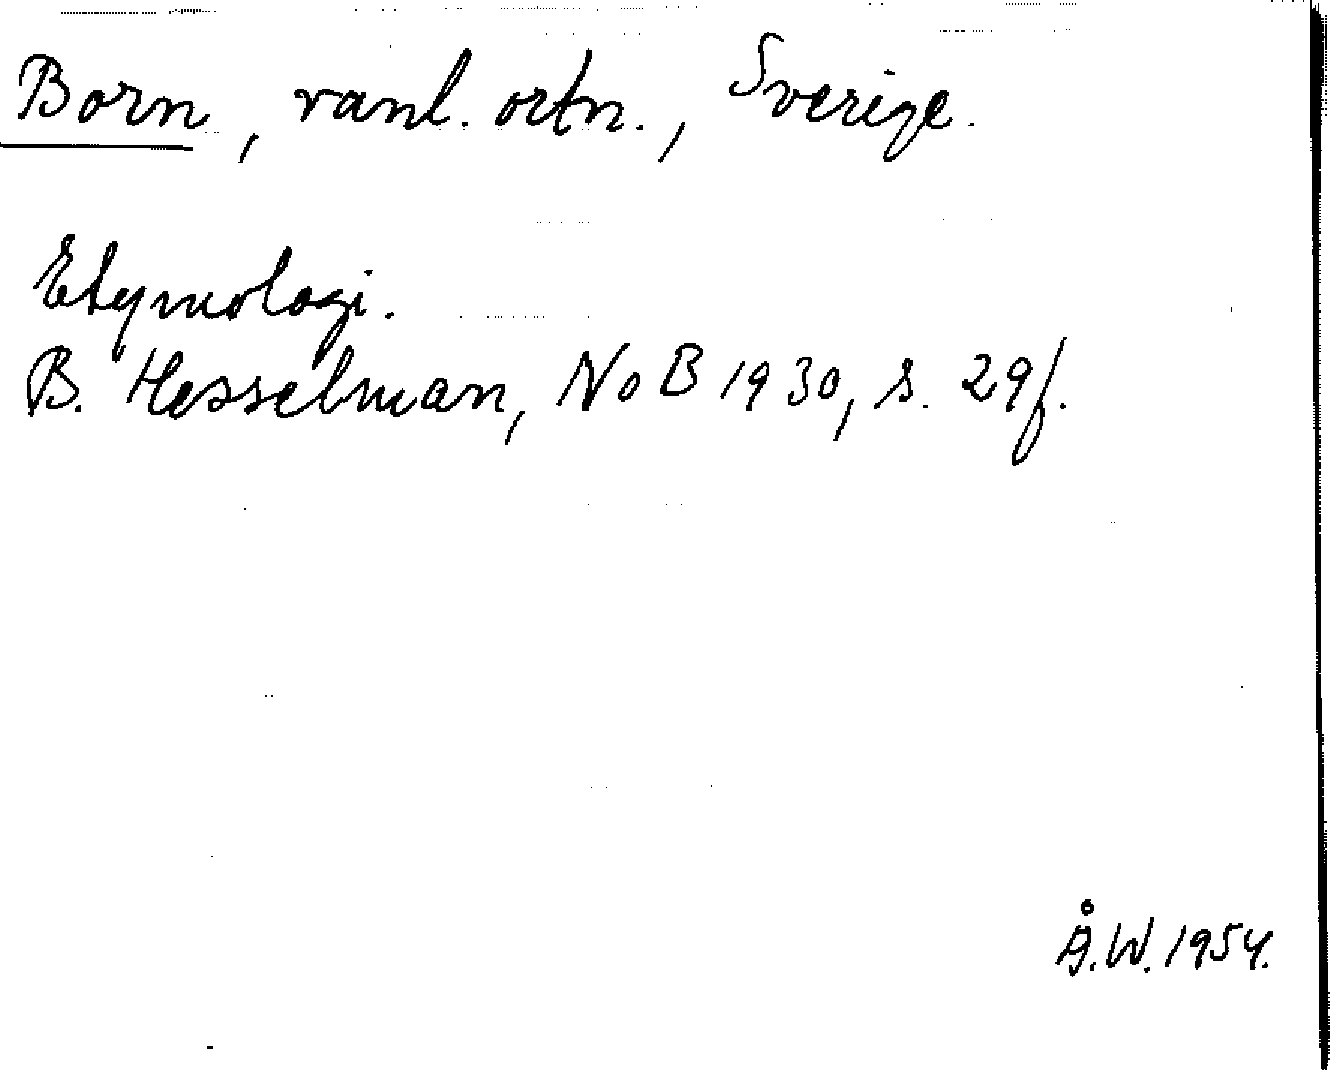 Born, vanl. ortn., Sverige.
Etymologi.
B. Hesselman, NoB 1930, s. 29f.
Å.W. 1954.